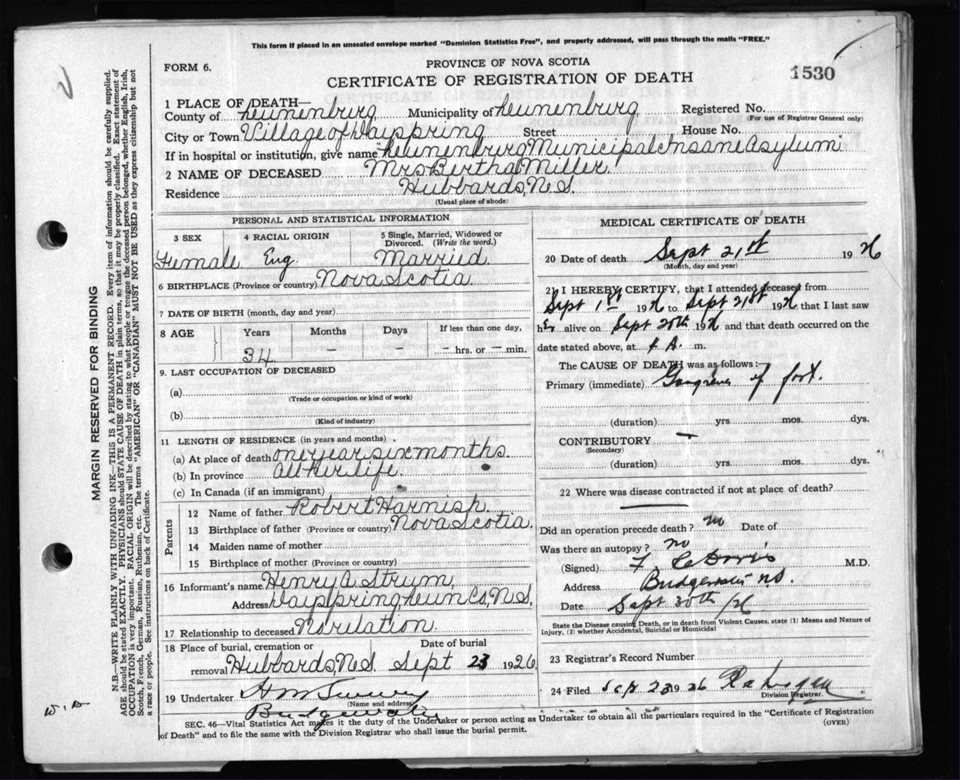 This form if placed in an unsealed envelope marked "Dominion Statistics Free", and properly addressed, will pass through the mails "FREE."
FORM 6.
PROVINCE OF NOVA SCOTIA
CERTIFICATE OF REGISTRATION OF DEATH
1530
1 PLACE OF DEATH—
County of Lunenburg Municipality of Lunenburg Registered No.
(For use of Registrar General only)
City or Town Village of Dayspring Street House No.
If in hospital or institution, give name Lunenburg Municipal Insane Asylum
2 NAME OF DECEASED Mrs Bertha Miller.
Residence Hubbards, N.S.
(Usual place of abode)
PERSONAL AND STATISTICAL INFORMATION
3 SEX 4 RACIAL ORIGIN 5 Single, Married, Widowed or Divorced. (Write the word.)
Female Eng. Married.
6 BIRTHPLACE (Province or country) Nova Scotia
7 DATE OF BIRTH (month, day and year)
8 AGE Years Months Days If less than one day,
34 — — — hrs. or — min.
9. LAST OCCUPATION OF DECEASED
(a)
(Trade or occupation or kind of work)
(b)
(Kind of industry)
11 LENGTH OF RESIDENCE (in years and months)
(a) At place of death one year six months.
(b) In province all her life.
(c) In Canada (if an immigrant)
Parents
12 Name of father Robert Harnish.
13 Birthplace of father (Province or country) Nova Scotia.
14 Maiden name of mother
15 Birthplace of mother (Province or country)
16 Informant's name Henry A. Strum,
Address Dayspring Lun Co, N.S.
17 Relationship to deceased No relation.
18 Place of burial, cremation or removal Date of burial
Hubbards, N.S. Sept 23 1926
19 Undertaker
(Name and address)
Bridgewater
MEDICAL CERTIFICATE OF DEATH
20 Date of death Sept 21st 1926
(Month, day and year)
21 I HEREBY CERTIFY, that I attended deceased from
Sept 1st 1926 to Sept 21st 1926 that I last saw
her alive on Sept 20th 1926 and that death occurred on
the date stated above, at A. m.
The CAUSE OF DEATH was as follows:
Primary (immediate) Gangrene of foot.
(duration) yrs. mos. dys.
CONTRIBUTORY —
(Secondary)
(duration) yrs. mos. dys.
22 Where was disease contracted if not at place of death?
Did an operation precede death? no Date of
Was there an autopsy? no
(Signed) M.D.
Address Bridgewater N.S.
Date Sept 20th /26
State the Disease causing Death, or in death from Violent Causes, state (1) Means and Nature of Injury, (2) whether Accidental, Suicidal or Homicidal
23 Registrar's Record Number
24 Filed Sept 23 1926
Division Registrar.
SEC. 46—Vital Statistics Act makes it the duty of the Undertaker or person acting as Undertaker to obtain all the particulars required in the "Certificate of Registration of Death" and to file the same with the Division Registrar who shall issue the burial permit.
(OVER)
MARGIN RESERVED FOR BINDING
N.B.—WRITE PLAINLY WITH UNFADING INK—THIS IS A PERMANENT RECORD. Every item of information should be carefully supplied. AGE should be stated EXACTLY. PHYSICIANS should STATE CAUSE OF DEATH in plain terms, so that it may be properly classified. Exact statement of OCCUPATION is very important. RACIAL ORIGIN will be described by stating to what people or tongue the deceased person belonged, whether English, Irish, Scotch, French, German, Russian, Ruthenian, etc. The terms "AMERICAN" OR "CANADIAN" MUST NOT BE USED as they express citizenship but not a race or people. See instructions on back of Certificate.